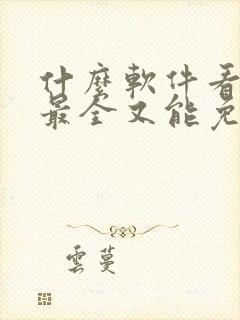 什麼軟件看
最全又能免
雲蔓